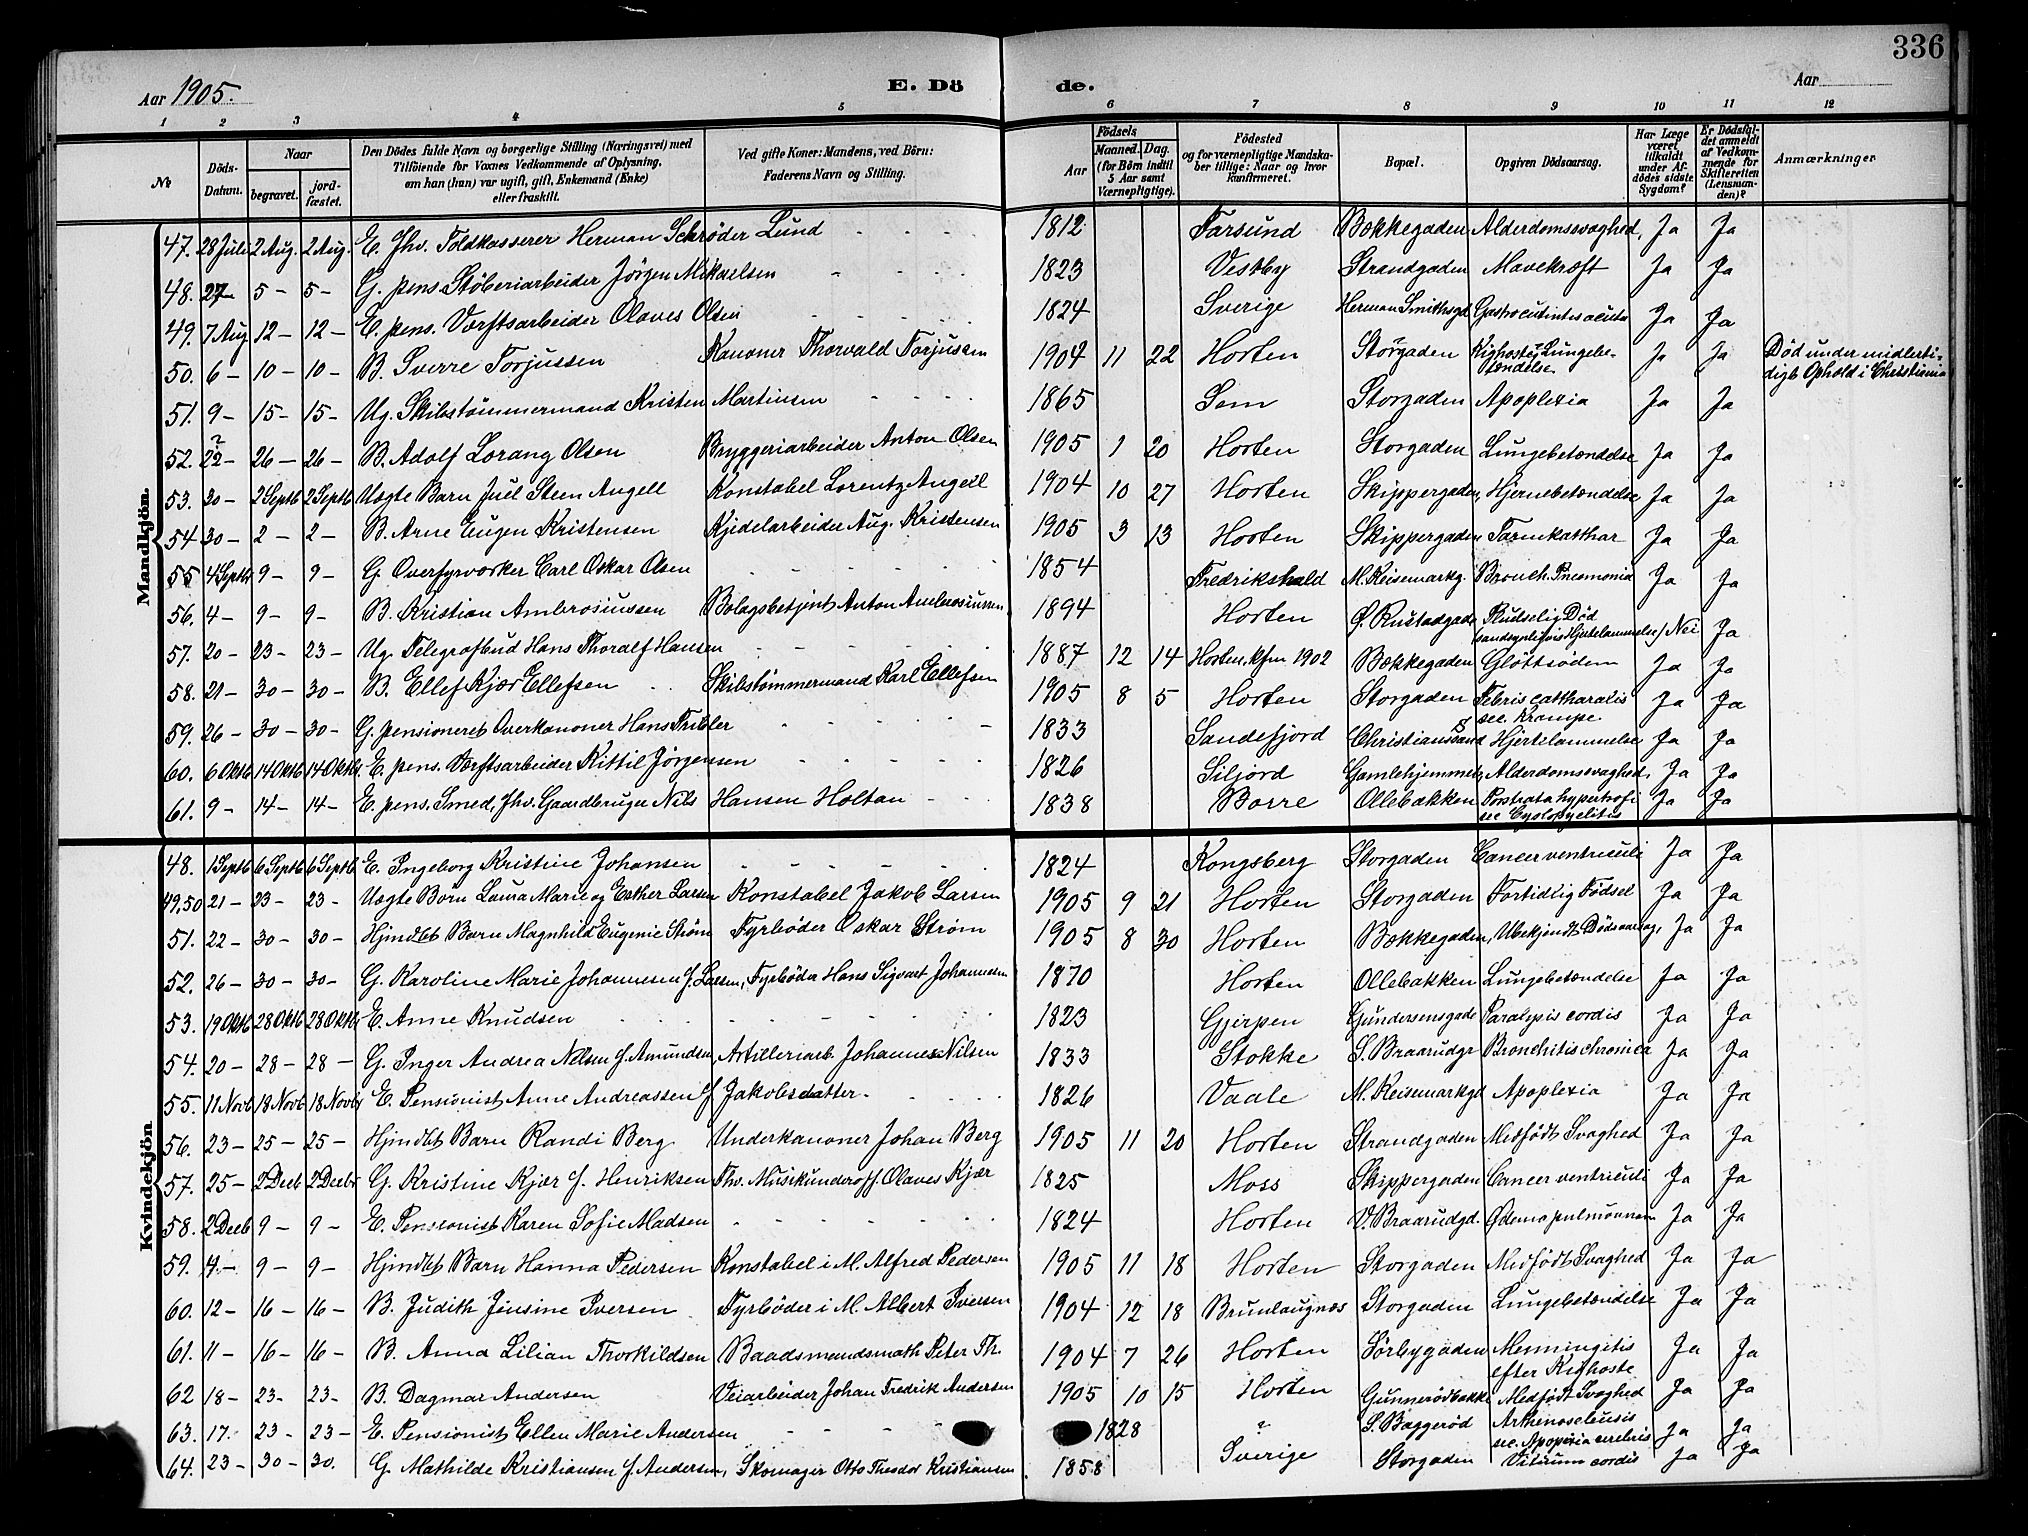 336
Aar 1905. E. Dö de. Aar
1 2 3 4 5 6 7 8 9 10 11 12
№ Döds-Datum. Naar begravet. jord-fæstet. Den Dödes fulde Navn og borgerlige Stilling (Næringsvei) med Tilföiende for Voxnes Vedkommende af Oplysning, om han (hun) var ugift, gift, Enkemand (Enke) eller fraskilt. Ved gifte Koner: Mandens, ved Börn: Faderens Navn og Stilling. Födsels Aar Maaned. Dag. (for Börn indtil 5 Aar samt Værnepligtige). Födested og for værnepligtige Mandska-ber tillige: Naar og hvor konfirmeret. Bopæl. Opgiven Dödsaarsag. Har Læge været tilkaldt under Af-dödes sidste Sygdom? Er Dödsfal-det anmeldt af Vedkom-mende for Skifteretten (Lensman-den)? Anmærkninger
Mandkjön.
47. 28 Juli 2 Aug. 2 Aug. E. Fhv. Toldkasserer Herman Schrøder Lund 1812 Farsund Bækkegaden Alderdomssvaghed, Ja Ja
48. 27 5 – 5 – G. pens. Støberiarbeider Jørgen Mikaelsen 1823 Vestby Strandgaden Mavekræft Ja Ja
49. 7 Aug 12 – 12 – E. pens. Værftsarbeider Olaves Olsen 1824 Sverige Herman Smithsgd Ja Ja
50. 6 – 10 – 10 – B. Sverre Torjussen Kanoner Thorvald Torjussen 1904 11 22 Horten Storgaden Kighoste, Lungebe-tændelse Ja Ja Død under midlerti-digt Ophold i Christiania
51. 9 – 15 – 15 – Ug. Skibstømmermand Kristen Martinsen 1865 Sem Storgaden Apoplexia Ja Ja
52. 22 – 26 – 26 – B. Adolf Lorang Olsen Bryggeriarbeider Anton Olsen 1905 1 20 Horten Storgaden Lungebetændelse Ja Ja
53. 30 – 2 Septb 2 Septb Uægte Barn Juel Steen Angell Konstabel Lorentz Angell 1904 10 27 Horten Skippergaden, Hjernebetændelse Ja Ja
54 30 – 2 – 2 – B. Arne Eugen Kristensen Kjedelarbeider Aug. Kristensen 1905 3 13 Horten Skippergaden Tarmkatthar Ja Ja
55 4 Septb 9 – 9 – G. Overfyrvorker Carl Oskar Olsen 1854 Fredrikshald M. Reisemarkg. Bronch. Pneumonia Ja Ja
56. 4 – 9 – 9 – B. Kristian Ambrosiussen Bolagsbetjent Anton Ambrosiussen 1894 Horten Ø. Rustadgade Pludselig Død (sandsynligvis Hjertelammelse) Nei Ja
57. 20 – 23 – 23 – Ug. Telegrafbud Hans Thoralf Hansen 1887 12 14 Horten. kfm 1902 Bækkegaden Glottsødem Ja Ja
58. 21 – 30 – 30 – B. Ellef Kjær Ellefsen Skibstømmermand Karl Ellefsen 1905 8 5 Horten Storgaden Febris cattharalis sec. Krampe. Ja Ja
59. 26 – 30 – 30 – G. pensioneret Overkanoner Hans 1833 Sandefjord Christianssand Hjertelammelse Ja Ja
60. 6 Oktb 14 Oktb 14 Oktb E. pens. Værftsarbeider Kittil Jørgensen 1826 Siljord Gamlehjemmet, Alderdomssvaghed, Ja Ja
61. 9 – 14 – 14 – E. pens. Smed, Fhv. Gaardbruger Nils Hansen Holtan 1838 Borre Ollebakken Prostata hypertrofi sec Cystopyelitis Ja Ja
Kvindekjön
48. 1 Septb 6 Septb 6 Septb E. Ingeborg Kristine Johansen 1824 Kongsberg Storgaden Cancer ventriculi Ja Ja
49, 50 21 – 23 – 23 – Uægte Børn Laura Marie og Esther Larsen Konstabel Jakob Larsen 1905 9 21 Horten Storgaden Fortidlig Fødsel Ja Ja
51. 22 – 30 – 30 – Hjmdbt Barn Magnhild Eugenie Strøm Fyrbøder Oskar Strøm 1905 8 30 Horten Bækkegaden, Ubekjendt Dødsaarsag, Ja Ja
52. 26 – 30 – 30 – G. Karoline Marie Johannesen f. Larsen, Fyrbøder Hans Sigvart Johannesen 1870 Horten Ollebakken Lungebetændelse Ja Ja
53. 19 Oktb 28 Oktb 28 Oktb E. Anne Knudsen 1823 Gjerpen Gundersensgade Paralysis cordis Ja Ja
54. 20 – 28 – 28 – G. Inger Andrea Nilsen f. Amundsen, Artilleriarb. Johannes Nilsen 1833 Stokke S. Braarudgr Bronchitis chronica Ja Ja
55. 11 Novb 18 Novb 18 Novbr E. Pensionist Anne Andreassen f. Jakobsdatter. 1826 Vaale M. Reisemarkgd Apoplexia Ja Ja
56. 23 – 25 – 25 – Hjmdbt Barn Randi Berg Underkanoner Johan Berg 1905 11 20 Horten Strandgaden Medfødt Svaghed Ja Ja
57. 25 – 2 Decb 2 Decbr G. Kristine Kjær f. Henriksen Fhv. Musikunderoff. Olaves Kjær 1825 Moss Skippergaden Cancer ventriculi Ja Ja
58. 2 Decb 9 – 9 – E. Pensionist Karen Sofie Madsen 1824 Horten V. Braarudgd. Ødema pulmonum Ja Ja
59. 4 – 9 – 9 – Hjmdbt Barn Hanna Pedersen Konstabel i M. Alfred Pedersen 1905 11 18 Horten Storgaden Medfødt Svaghed Ja Ja
60. 12 – 16 – 16 – B. Judith Jensine Iversen Fyrbøder i M. Albert Iversen 1904 12 18 Brunlaugnæs Storgaden Lungebetændelse Ja Ja
61. 11 – 16 – 16 – B. Anna Lilian Thorkildsen Baadsmandsmath Peter Th. 1904 7 26 Horten Sørbygaden Menningitis efter Kighoste Ja Ja
62 18 – 23 – 23 – B. Dagmar Andersen Veiarbeider Johan Fredrik Andersen 1905 10 15 Horten Gunnerødbakke Medfødt Svaghed Ja Ja
63. 17. 23 – 23 – E. Pensionist Ellen Marie Andersen 1828 ? S. Baggerød sec. Apoplexia cerebris Ja Ja
64. 23 – 30 – 30. G. Mathilde Kristiansen f. Andersen, Skomager Otto Theodor Kristiansen. 1858 Sverige Storgaden Vitium cordis Ja Ja